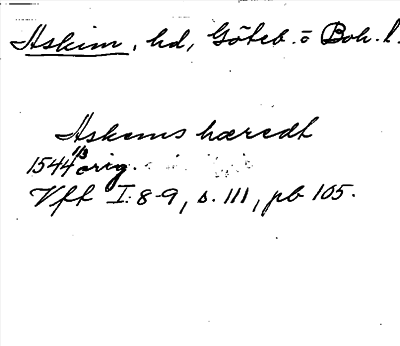 Askim, hd, Göteb. o Boh. l.
Askems hæredt
1544 1/3 orig.
Vff I: 8-9, s. 111, pb 105.